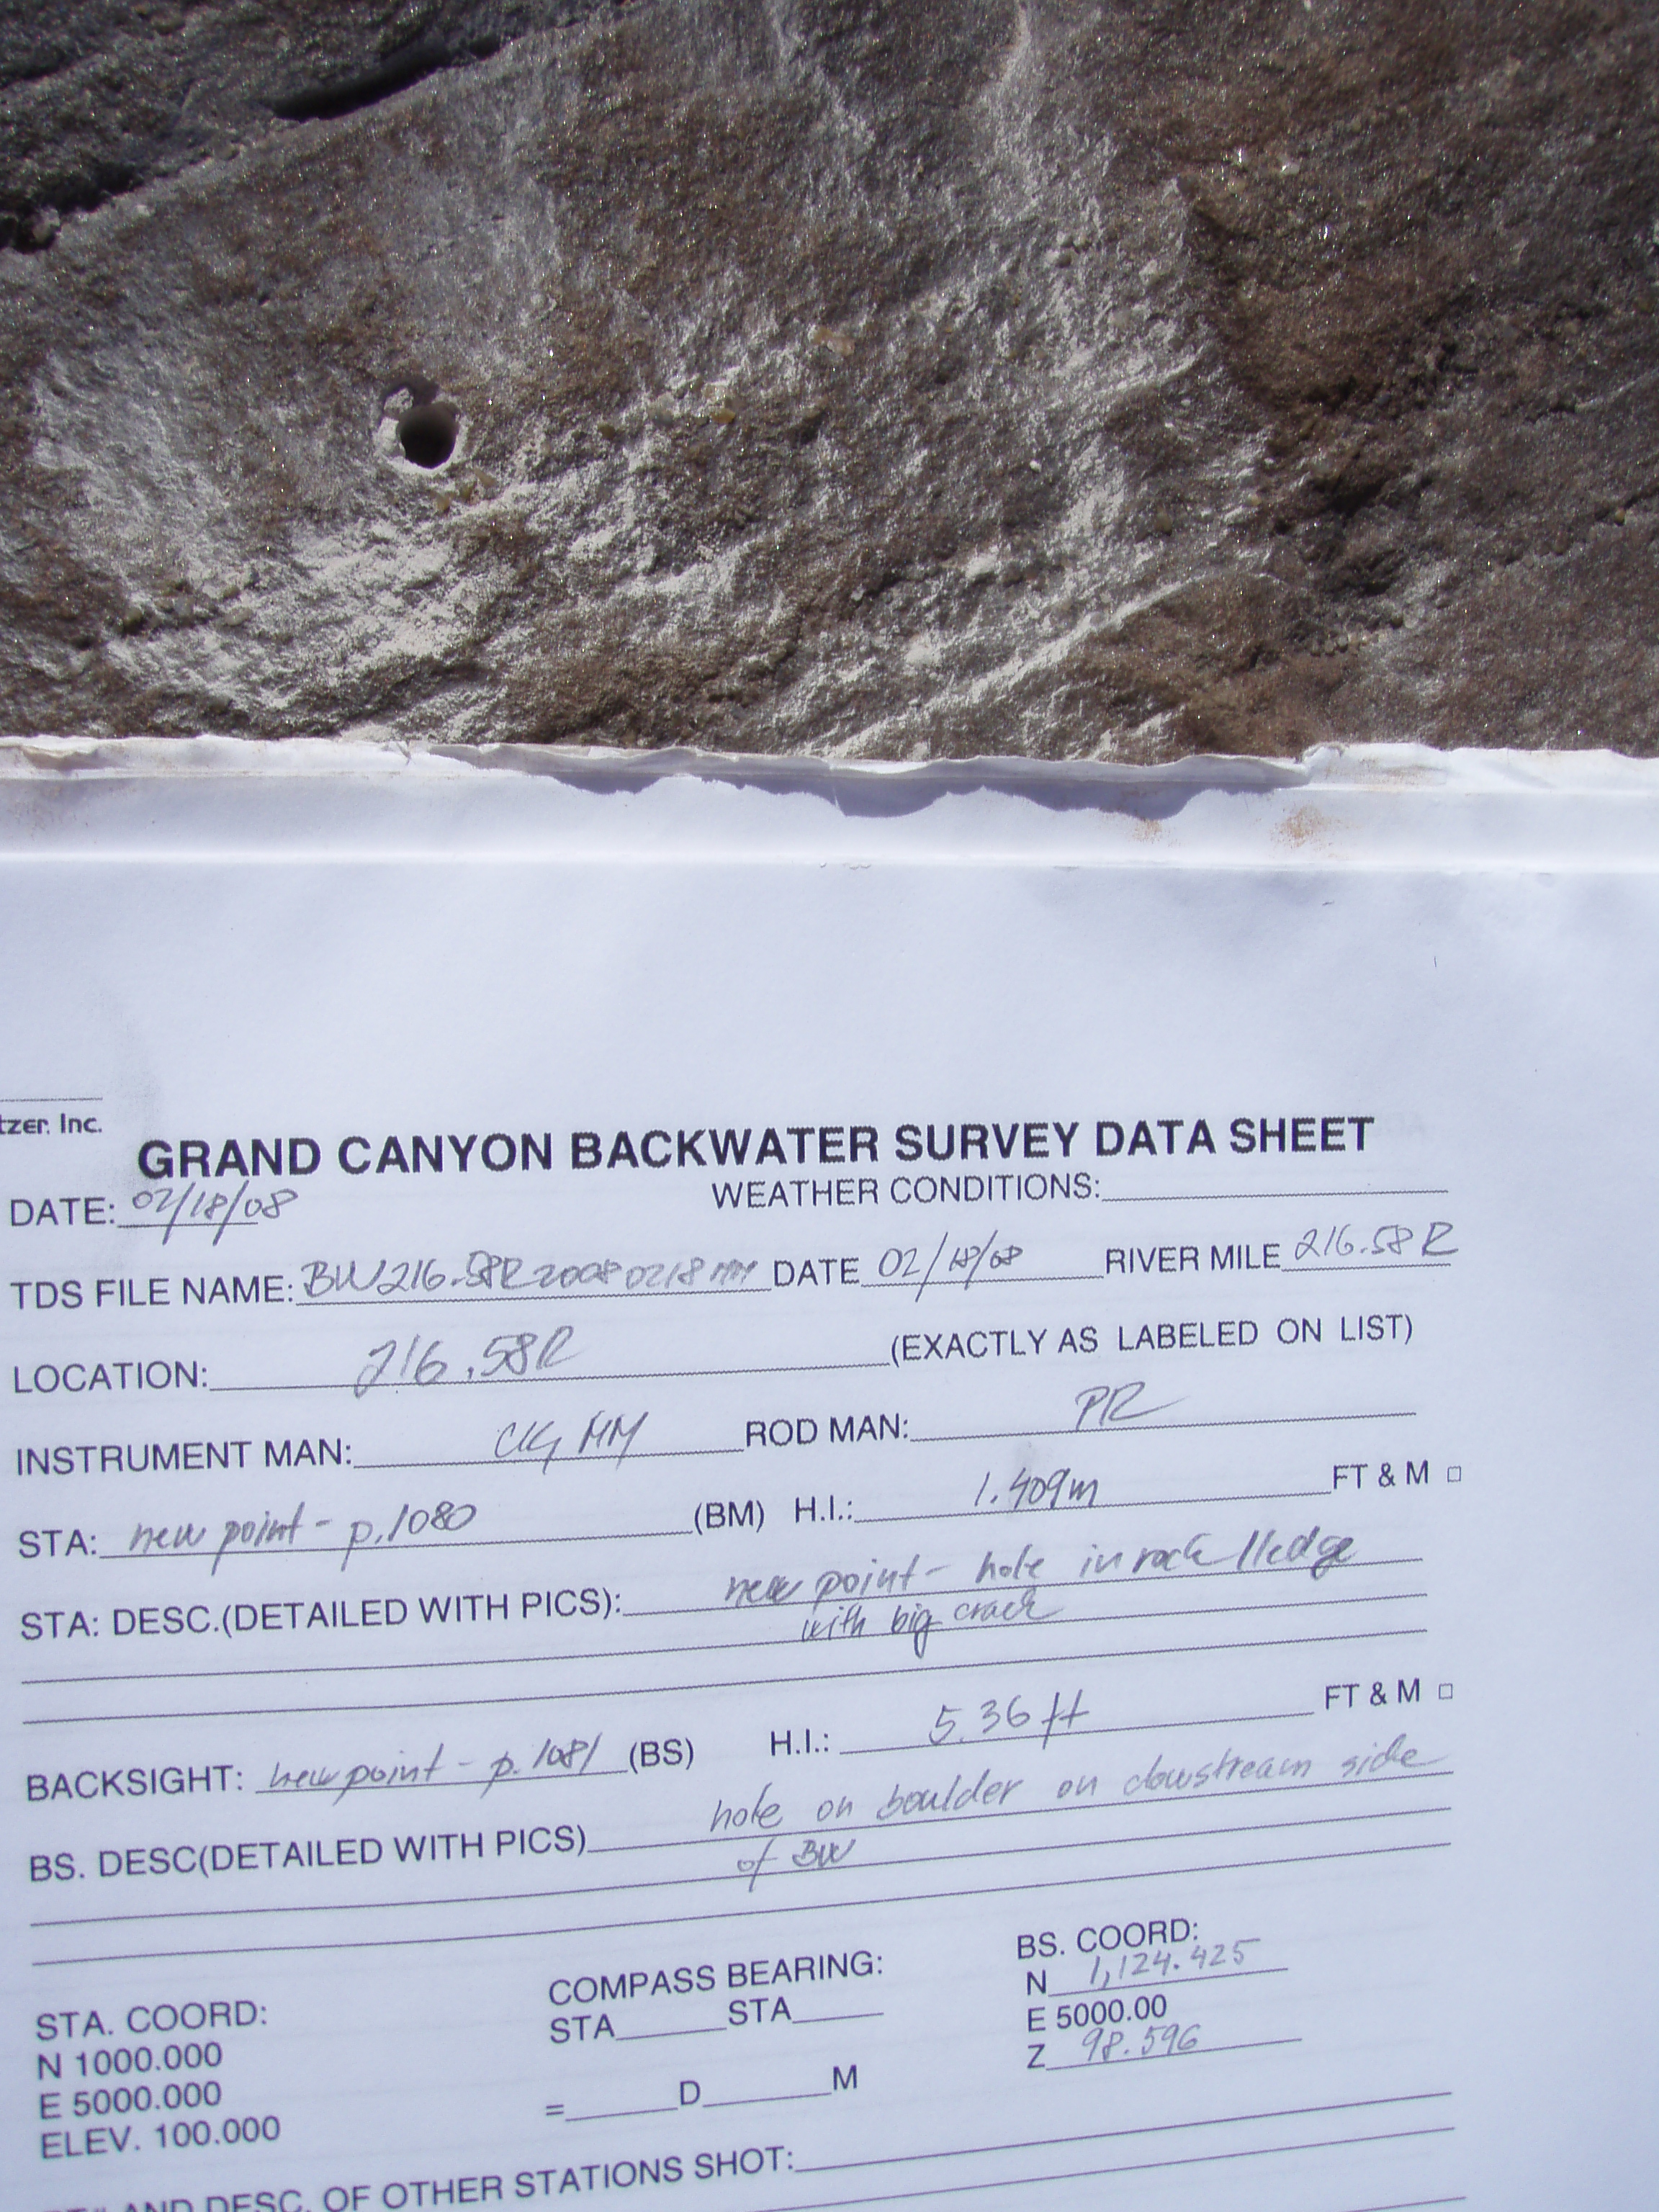 tzer, Inc.
GRAND CANYON BACKWATER SURVEY DATA SHEET
DATE: 02/18/08 WEATHER CONDITIONS:
TDS FILE NAME: BW216.58R20080218MM DATE 02/18/08 RIVER MILE 216.58R
LOCATION: 216.58R (EXACTLY AS LABELED ON LIST)
INSTRUMENT MAN: MM ROD MAN: PR
STA: new point - p.1080 (BM) H.I.: 1.409m FT & M
STA: DESC.(DETAILED WITH PICS): new point - hole in rock ledge
with big crack
BACKSIGHT: new point - p.1081 (BS) H.I.: 5.36 ft FT & M
BS. DESC(DETAILED WITH PICS) hole on boulder on dowstream side
of BW
STA. COORD: COMPASS BEARING: BS. COORD:
N 1000.000 STA STA N 1,124.425
E 5000.000 E 5000.00
ELEV. 100.000 = D M Z 98.596
AND DESC. OF OTHER STATIONS SHOT: